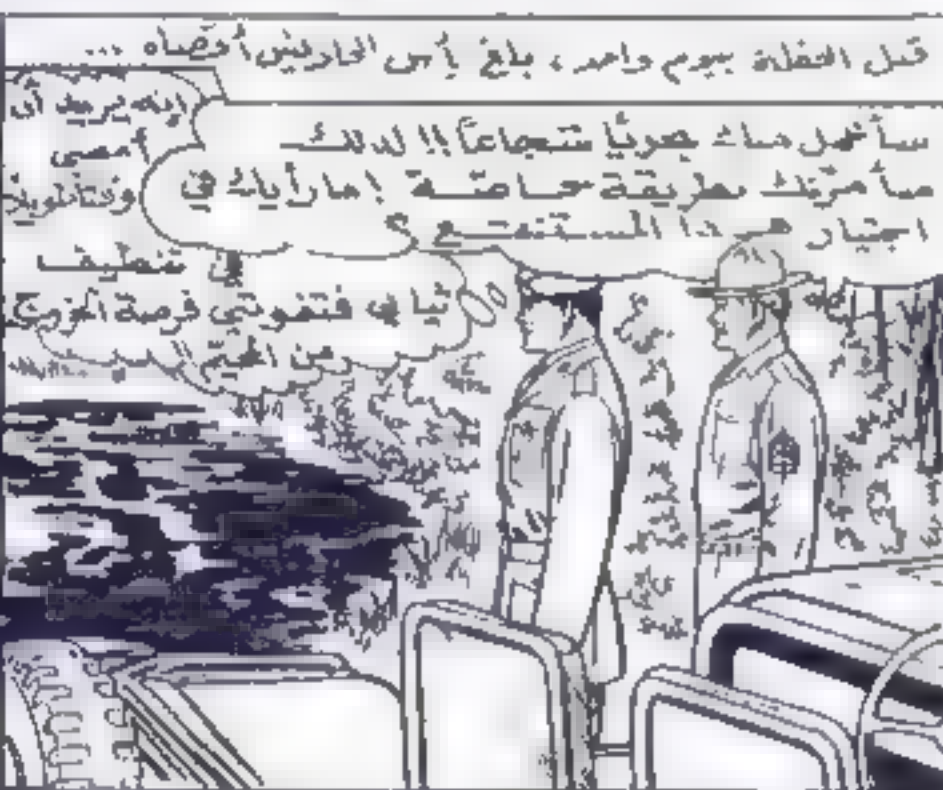 قبل الحفلة بيوم واحد، بلغ يأس الحارفين أقصاه ...
سأجعل منك بحريًا شجاعًا!! لذلك
سأمرّنك بطريقة خاصة! ما رأيك في
اجتياز هذا المستنقع؟
إنه يريد أن
أمضي
وقتًا طويلاً
في تنظيف
ثيابي فتفوتني فرصة الخروج
من المخيّم